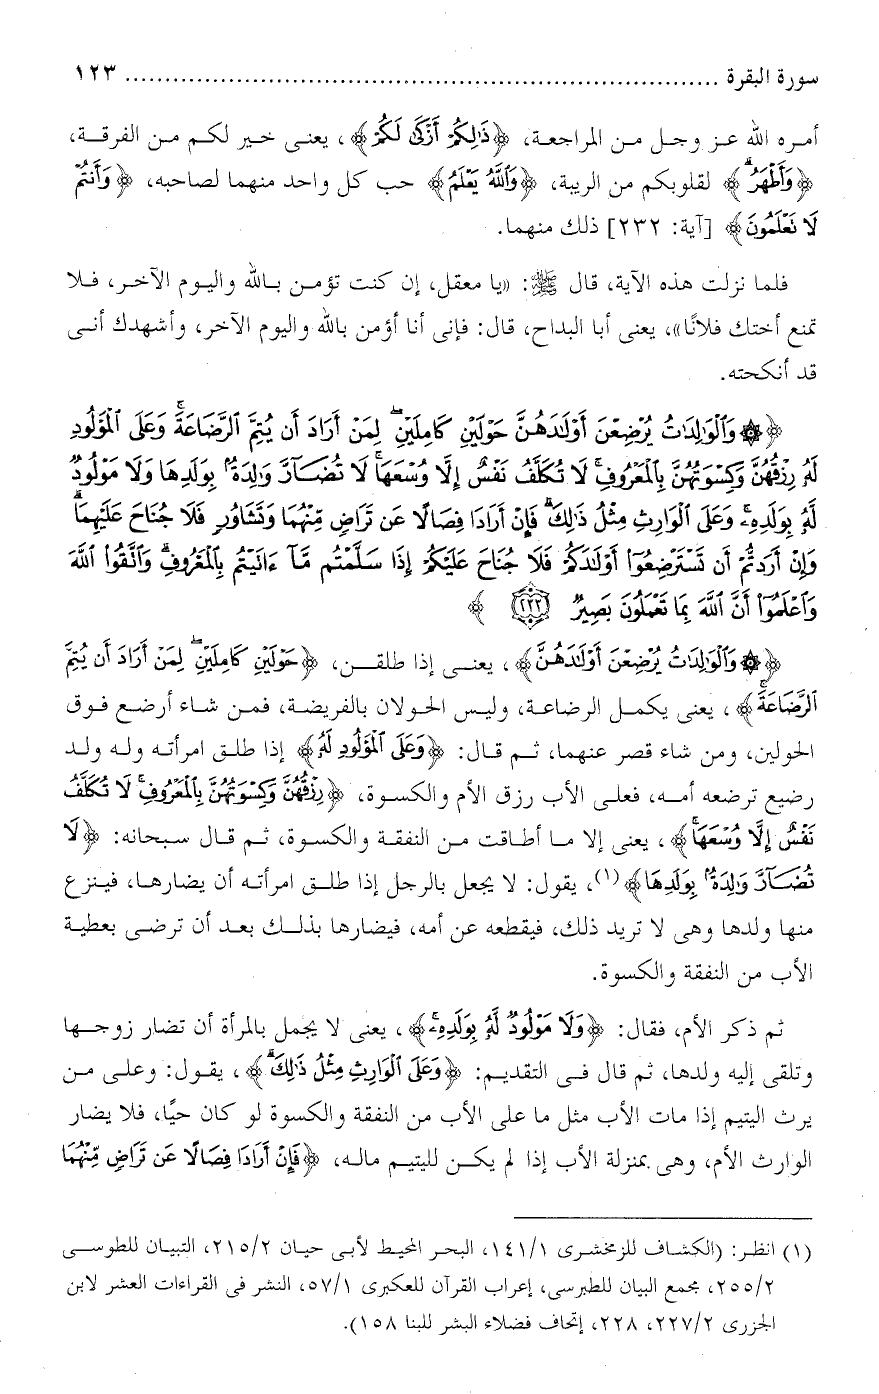 سورة البقرة ........................................................................ ١٢٣
أمره الله عز وجل من المراجعة، ﴿ذَٰلِكُمْ أَزْكَىٰ لَكُمْ﴾، يعنى خير لكم من الفرقة،
﴿وَأَطْهَرُ ۗ﴾ لقلوبكم من الريبة، ﴿وَٱللَّهُ يَعْلَمُ﴾ حب كل واحد منهما لصاحبه، ﴿وَأَنتُمْ
لَا تَعْلَمُونَ﴾ [آية: ٢٣٢] ذلك منهما.
فلما نزلت هذه الآية، قال ﷺ: «يا معقل، إن كنت تؤمن بالله واليوم الآخر، فلا
تمنع أختك فلانًا»، يعنى أبا البداح، قال: فإنى أنا أؤمن بالله واليوم الآخر، وأشهدك أنى
قد أنكحته.
﴿۞ وَٱلْوَٰلِدَٰتُ يُرْضِعْنَ أَوْلَٰدَهُنَّ حَوْلَيْنِ كَامِلَيْنِ ۖ لِمَنْ أَرَادَ أَن يُتِمَّ ٱلرَّضَاعَةَ ۚ وَعَلَى ٱلْمَوْلُودِ
لَهُۥ رِزْقُهُنَّ وَكِسْوَتُهُنَّ بِٱلْمَعْرُوفِ ۚ لَا تُكَلَّفُ نَفْسٌ إِلَّا وُسْعَهَا ۚ لَا تُضَآرَّ وَٰلِدَةٌۢ بِوَلَدِهَا وَلَا مَوْلُودٌ
لَّهُۥ بِوَلَدِهِۦ ۚ وَعَلَى ٱلْوَارِثِ مِثْلُ ذَٰلِكَ ۗ فَإِنْ أَرَادَا فِصَالًا عَن تَرَاضٍ مِّنْهُمَا وَتَشَاوُرٍ فَلَا جُنَاحَ عَلَيْهِمَا ۗ
وَإِنْ أَرَدتُّمْ أَن تَسْتَرْضِعُوٓا۟ أَوْلَٰدَكُمْ فَلَا جُنَاحَ عَلَيْكُمْ إِذَا سَلَّمْتُم مَّآ ءَاتَيْتُم بِٱلْمَعْرُوفِ ۗ وَٱتَّقُوا۟ ٱللَّهَ
وَٱعْلَمُوٓا۟ أَنَّ ٱللَّهَ بِمَا تَعْمَلُونَ بَصِيرٌ ٢٣٣﴾
﴿۞ وَٱلْوَٰلِدَٰتُ يُرْضِعْنَ أَوْلَٰدَهُنَّ﴾، يعنى إذا طلقن، ﴿حَوْلَيْنِ كَامِلَيْنِ ۖ لِمَنْ أَرَادَ أَن يُتِمَّ
ٱلرَّضَاعَةَ ۚ﴾، يعنى يكمل الرضاعة، وليس الحولان بالفريضة، فمن شاء أرضع فوق
الحولين، ومن شاء قصر عنهما، ثم قال: ﴿وَعَلَى ٱلْمَوْلُودِ لَهُۥ﴾ إذا طلق امرأته وله ولد
رضيع ترضعه أمه، فعلى الأب رزق الأم والكسوة، ﴿رِزْقُهُنَّ وَكِسْوَتُهُنَّ بِٱلْمَعْرُوفِ ۚ لَا تُكَلَّفُ
نَفْسٌ إِلَّا وُسْعَهَا ۚ﴾، يعنى إلا ما أطاقت من النفقة والكسوة، ثم قال سبحانه: ﴿لَا
تُضَآرَّ وَٰلِدَةٌۢ بِوَلَدِهَا﴾(١)، يقول: لا يجعل بالرجل إذا طلق امرأته أن يضارها، فينزع
منها ولدها وهى لا تريد ذلك، فيقطعه عن أمه، فيضارها بذلك بعد أن ترضى بعطية
الأب من النفقة والكسوة.
ثم ذكر الأم، فقال: ﴿وَلَا مَوْلُودٌ لَّهُۥ بِوَلَدِهِۦ ۚ﴾، يعنى لا يجمل بالمرأة أن تضار زوجها
وتلقى إليه ولدها، ثم قال فى التقديم: ﴿وَعَلَى ٱلْوَارِثِ مِثْلُ ذَٰلِكَ ۗ﴾، يقول: وعلى من
يرث اليتيم إذا مات الأب مثل ما على الأب من النفقة والكسوة لو كان حيًا، فلا يضار
الوارث الأم، وهى بمنزلة الأب إذا لم يكن لليتيم ماله، ﴿فَإِنْ أَرَادَا فِصَالًا عَن تَرَاضٍ مِّنْهُمَا
(١) انظر: (الكشاف للزمخشرى ١٤١/١، البحر المحيط لأبى حيان ٢١٥/٢، التبيان للطوسى
٢٥٥/٢، مجمع البيان للطبرسى، إعراب القرآن للعكبرى ٥٧/١، النشر فى القراءات العشر لابن
الجزرى ٢٢٧/٢، ٢٢٨، إتحاف فضلاء البشر للبنا ١٥٨).